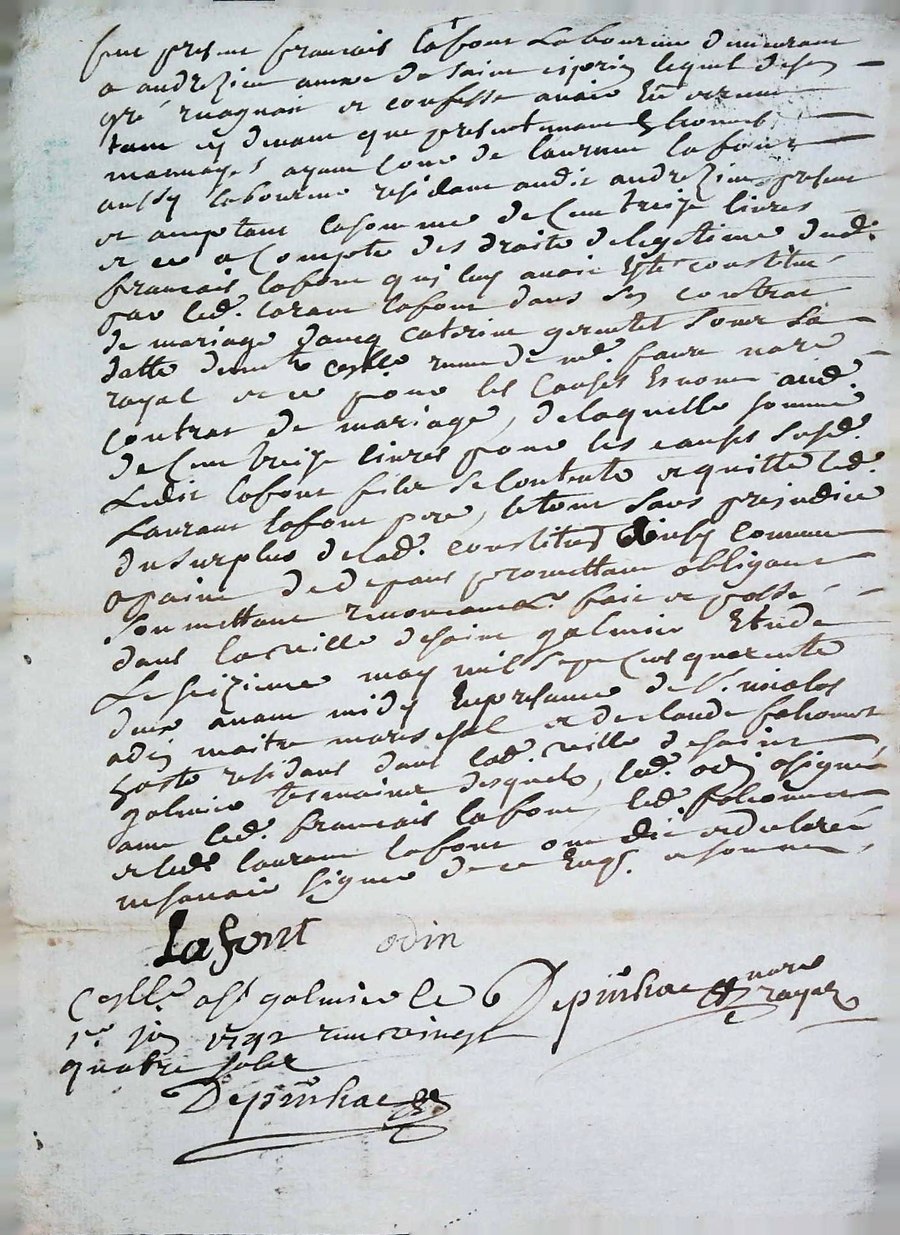 fut present francois lafont Laboureur demeurant
a andrezieu annexe de saint ciprien lequel de son
gré reconnoit et confesse avoir Eu et receu
tant cy devant que presentement
ayant cour de laurent lafont
aussy laboureur residant audit andrezieu present
et acceptant la somme de Cent treize livres
et ce a Compte des droits de legitime dud.
francois lafont quy luy avoit Esté constitué
par led. laurant lafont dans son contrat
de mariage avecq caterine sous sa
datte receu de me. faure nore
royal et ce pour les Causes Enoncé aud.
contrat de mariage, de laquelle somme
de Cent treize livres pour les causes susd.
Ledit lafont fils se Contente et quitte led.
Laurant lafont pere, le tout sans prejudice
du surplus de lad. constitu᷑ ainsy comme
a paine de depans promettant obligeant
Soumettant renonceant fait et passé
dans la ville de saint galmier Etude
Le seizieme may mil sept Cens quarente
deux avant midy En presance de Sr. nicolas
odin maitre mareschal et de claude
hoste residans dans lad. ville de saint
galmier tesmoins desquels, led. odin a signé
avec led. francois lafont, led.
et led. laurant lafont ont dit et declaré
ne scavoir signer de ce Enqs. et sommé
Lafont odin
Conllé a st galmier le
1er. jin 1742 receu vingt
quatre sols
nore
royal